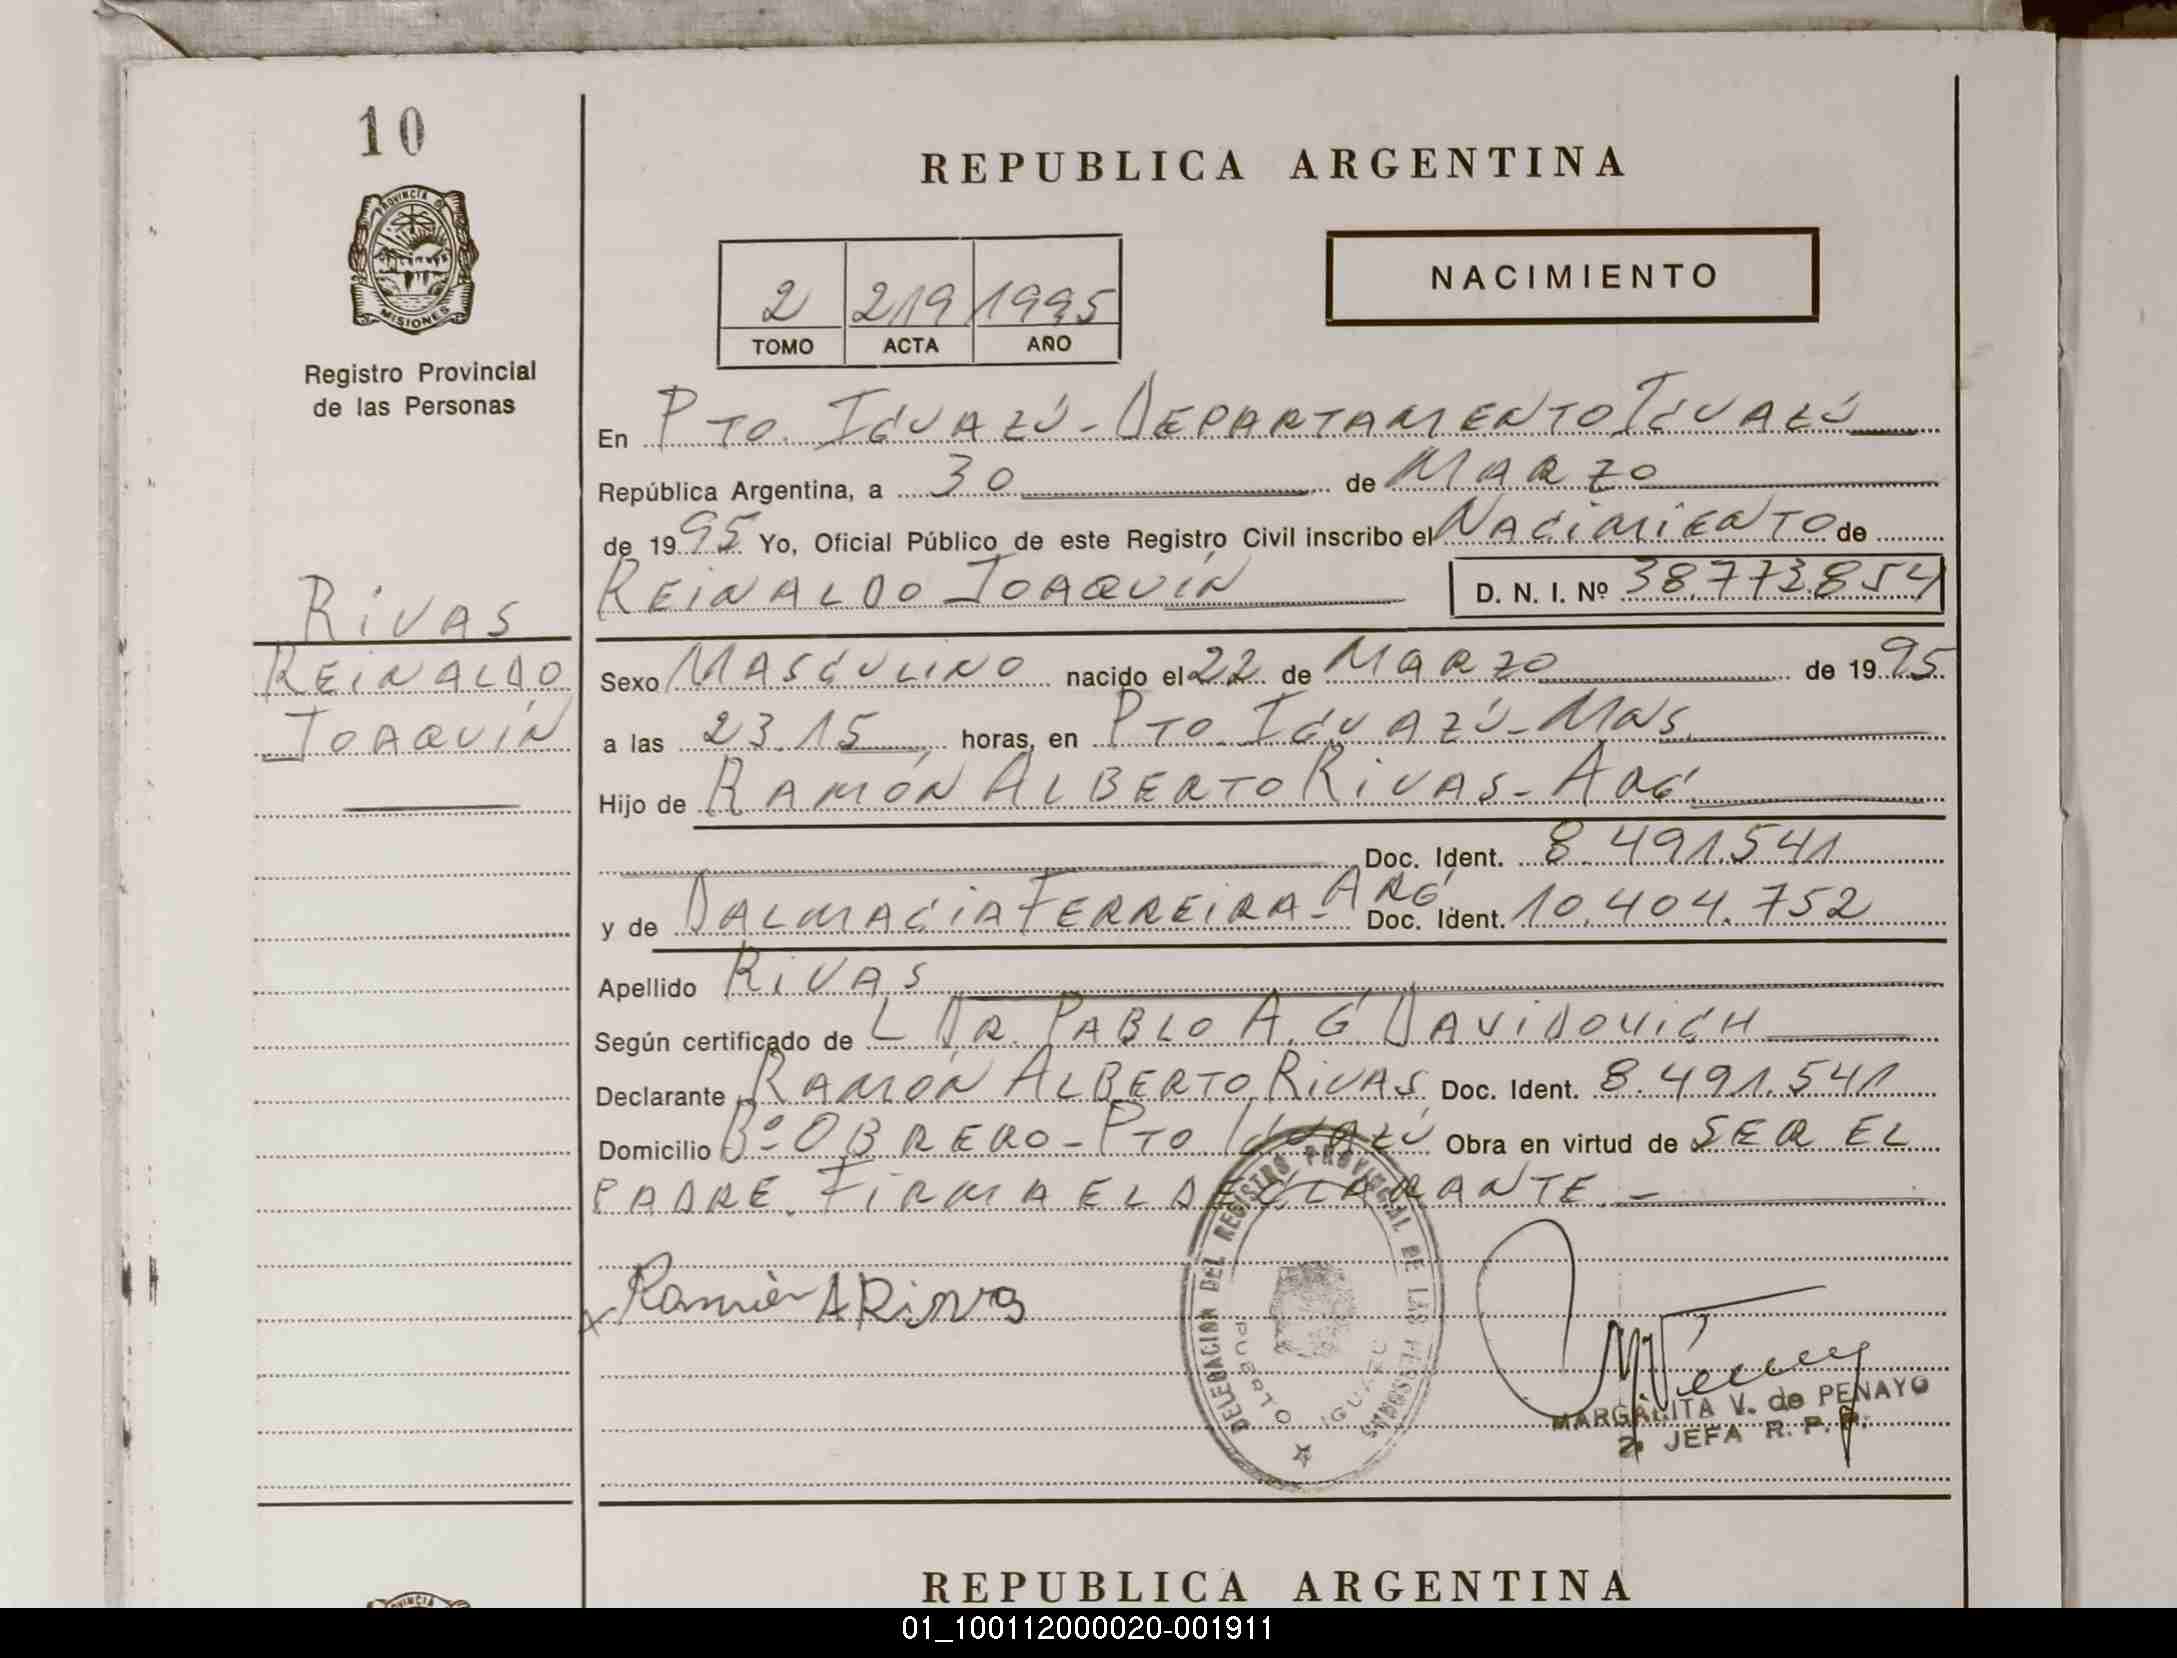 10
PROVINCIA DE
MISIONES
Registro Provincial
de las Personas
RIVAS
REINALDO
JOAQUÍN
REPUBLICA ARGENTINA
NACIMIENTO
2 219 1995
TOMO ACTA AÑO
En PTO. IGUAZÚ - DEPARTAMENTO IGUAZÚ
República Argentina, a 30 de MARZO
de 1995 Yo, Oficial Público de este Registro Civil inscribo el NACIMIENTO de
REINALDO JOAQUÍN D. N. I. Nº 38.773.854
Sexo MASCULINO nacido el 22 de MARZO de 1995
a las 23.15 horas, en PTO. IGUAZÚ - MNS.
Hijo de RAMÓN ALBERTO RIVAS - ARG.
Doc. Ident. 8.491.541
y de DALMACIA FERREIRA - ARG. Doc. Ident. 10.404.752
Apellido RIVAS
Según certificado de L DR. PABLO A. G. DAVIDOVICH
Declarante RAMÓN ALBERTO RIVAS Doc. Ident. 8.491.541
Domicilio Bº OBRERO - PTO. IGUAZÚ Obra en virtud de SER EL
PADRE. FIRMA EL DECLARANTE. -
x Ramón A Rivas
DELEGACION DEL REGISTRO PROVINCIAL DE LAS PERSONAS
PUERTO IGUAZU
MARGARITA V. de PENAYO
2ª JEFA R. P. P.
REPUBLICA ARGENTINA
01_100112000020-001911